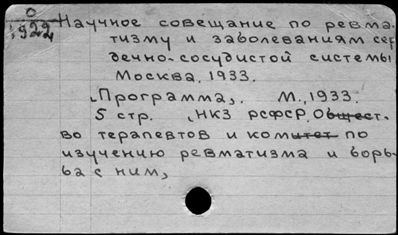 О
1922
Научное совещание по ревма-
тизму и заболеваниям сер
дечно-сосудистой системы
Москва, 1933.
„Программа„. М., 1933.
5 стр. „НКЗ РСФСР. Общест-
во терапевтов и комитет по
изучению ревматизма и борь-
ба с ним„